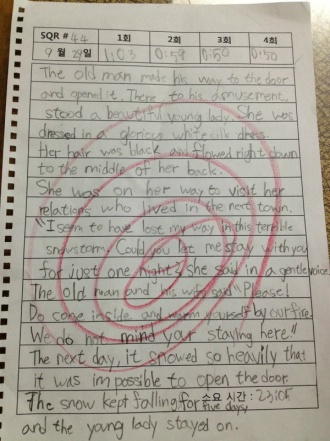 SQR # 44 1회 2회 3회 4회
9 월 29일 1:03 0:58 0:50 0:50
The old man made his way to the door
and opened it. There to his amusement,
stood a beautiful young lady. She was
dressed in a glorious white silk dress.
Her hair was black and flowed right down
to the middle of her back.
She was on her way to visit her
relations who lived in the next town.
"I seem to have lost my way in this terrible
snowstorm. Could you let me stay with you
for just one night? she said in a gentle voice.
The old man and his wife said "Please!
Do come inside and warm yourself by our fire.
We do not mind your staying here."
The next day, it snowed so heavily that
it was impossible to open the door.
The snow kept falling for five days,
소요 시간 :
and the young lady stayed on.